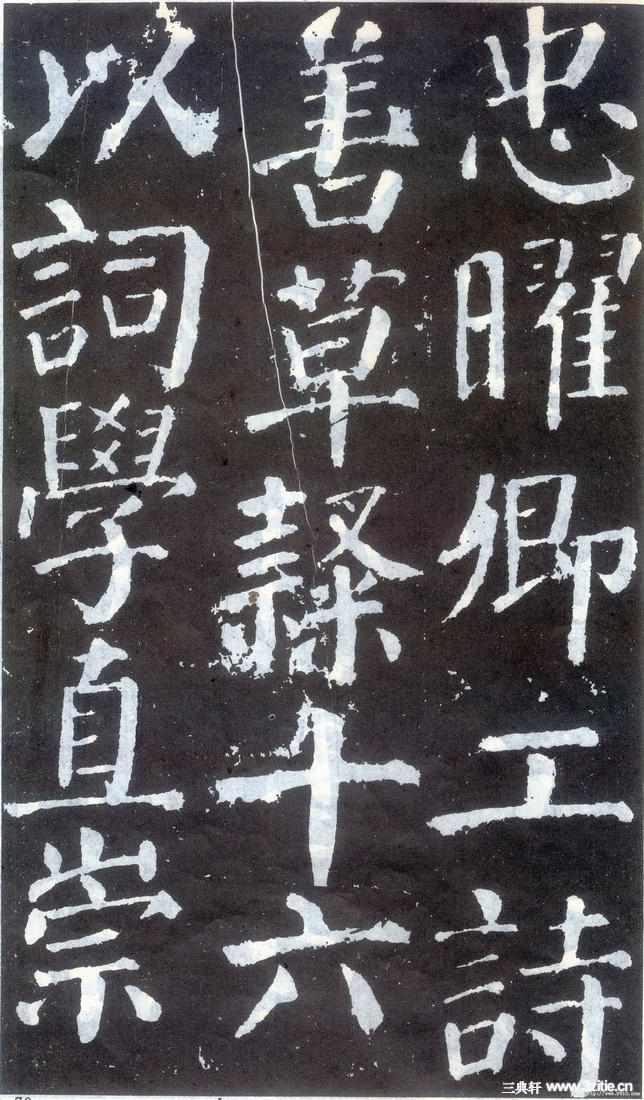 忠曜卿工詩
善草隸十六
以詞學直崇
三典轩 www.3zitie.cn